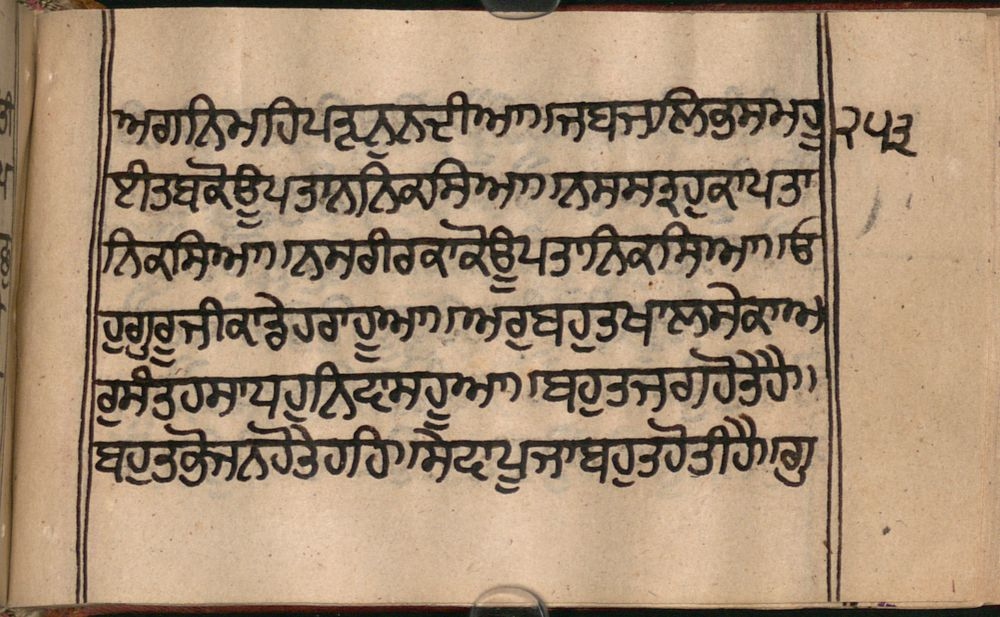 ਅਗਨਿਮਹਿਪੜਨੂਨਦੀਆ॥ਜਬਜਾਲਿਭਸਮਹੂ ੨੫੩
ਈਤਬਕੋਊਪਤਾਨਨਿਕਸਿਆ॥ਨਸਸਤ੍ਰਹੁਕਾਪਤਾ
ਨਿਕਸਿਆ॥ਨਸਰੀਰਕਾਕੋਊਪਤਾਨਿਕਸਿਆ॥ਓ
ਹੁਗੁਰੂਜੀਕਾਡੇਹਰਾਹੂਆ॥ਅਰੁਬਹੁਤਖਾਲਸੇਕਾਅ
ਰੁਸੰਤਹਸਾਧਹੁਨਿਵਾਸਹੂਆ॥ਬਹੁਤਜਗਹੋਤੈਹੈ॥
ਬਹੁਤਭੋਜਨਹੋਤੇਹਹਿ॥ਸੇਵਾਪੂਜਾਬਹੁਤਹੋਤੀਹੈ॥ਗੁ